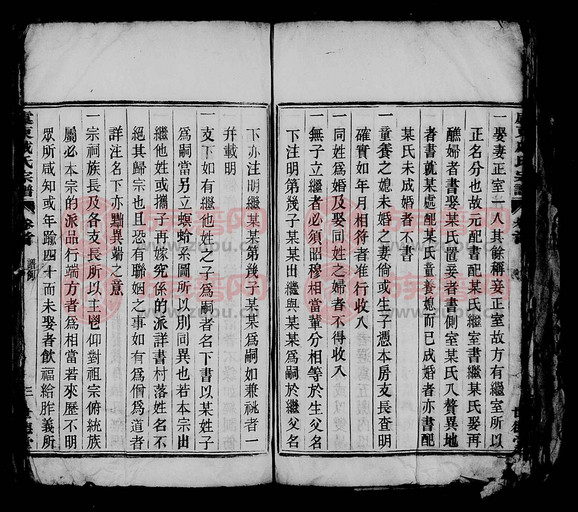 一娶妻正室一人其餘稱妾正室故方有繼室所以
正名分也故元配書配某氏繼室書繼某氏娶再
醮婦者書娶某氏置妾者書側室某氏入贅異地
者書就某處配某氏童養媳而已成婚者亦書配
某氏未成婚者不書
一童養之媳未婚之妻倘或生子憑本房支長查明
確實如年月相符者准行收入
一同姓為婚及娶同姓之婦者不得收入
一無子立繼者必須韶穆相當輩分相等於生父名
下注明第幾子某某出繼與某某為嗣於繼父名
下亦注明繼某某第幾子某某為嗣如兼祧者一
幷載明
一支下如有繼他姓之子為嗣者名下書以某姓子
為嗣當另立螟蛉系圖所以別同異也若本宗出
繼他姓或攜子再嫁究係的派詳書村落姓名不
絕其歸宗也且恐有聯姻之事如有為僧為道者
詳注名下亦黜異端之意
一宗祠族長及各支長所以主鬯仰對祖宗俯統族
屬必本宗的派品行端方者為相當若來歷不明
眾所咸知或年踰四十而未娶者飲福給胙義所
氏宗譜
卷首
三